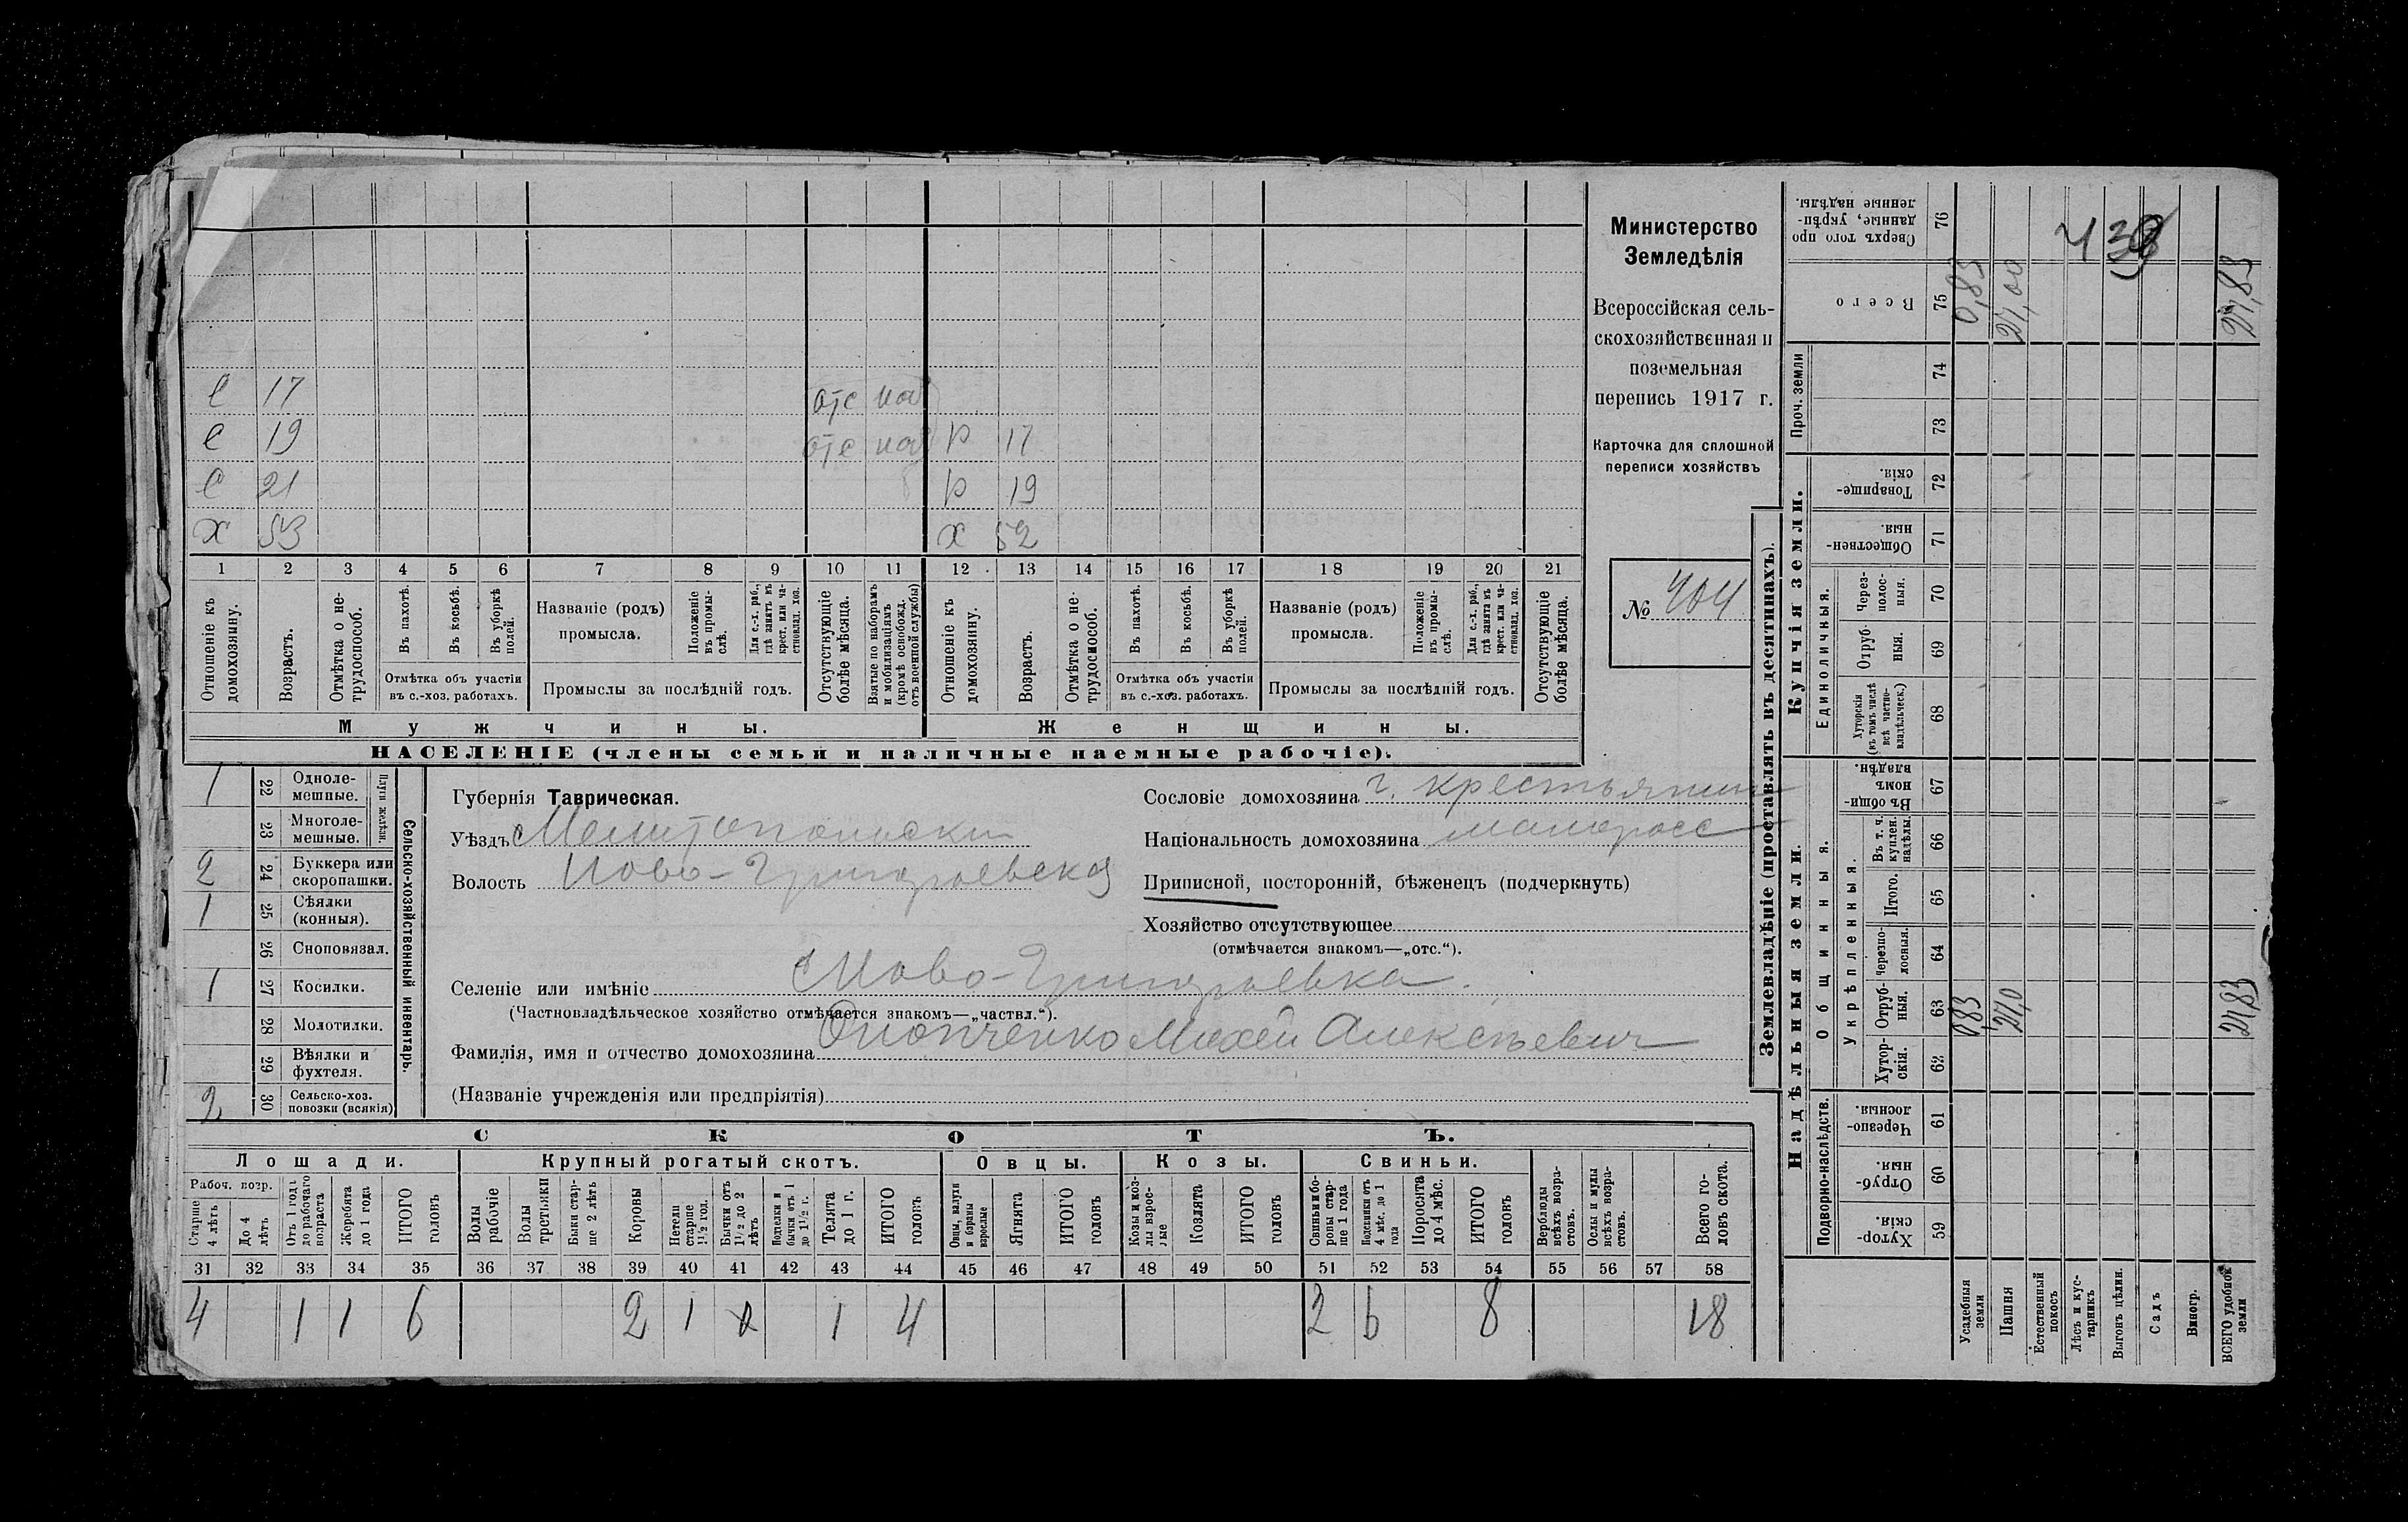 С 17 отс наб
С 19 отс наб Р 17
С 21 Р 19
Х 53 Х 52
1 2 3 4 5 6 7 8 9 10 11 12 13 14 15 16 17 18 19 20 21
Отношеніе къ домохозяину.
Возрастъ.
Отмѣтка о не-трудоспособ.
Въ пахотѣ.
Въ косьбѣ.
Въ уборкѣ полей.
Отмѣтка объ участіи
въ с.-хоз. работахъ.
Названіе (родъ)
промысла.
Положеніе въ промы-слѣ.
Для с.-х. раб., гдѣ занятъ въ крест. или ча-стновлад. хоз.
Промыслы за послѣдній годъ.
Отсутствующіе болѣе мѣсяца.
Взятые по наборамъ и мобилизаціямъ (кромѣ освобожд. отъ военной службы)
Отношеніе къ домохозяину.
Возрастъ.
Отмѣтка о не-трудоспособ.
Въ пахотѣ.
Въ косьбѣ.
Въ уборкѣ полей.
Отмѣтка объ участіи
въ с.-хоз. работахъ.
Названіе (родъ)
промысла.
Положеніе въ промы-слѣ.
Для с.-х. раб., гдѣ занята въ крест. или ча-стновлад. хоз.
Промыслы за послѣдній годъ.
Отсутствующіе болѣе мѣсяца.
Мужчины.
Женщины.
НАСЕЛЕНІЕ (члены семьи и наличные наемные рабочіе).
Министерство
Земледѣлія
Всероссійская сель-
скохозяйственная и
поземельная
перепись 1917 г.
Карточка для сплошной
переписи хозяйствъ
№ 404
1 22 Одноле-мешные.
23 Многоле-мешные.
Плуги желѣзн.
2 24 Буккера или скоропашки.
1 25 Сѣялки (конныя).
26 Сноповязал.
1 27 Косилки.
28 Молотилки.
29 Вѣялки и фухтеля.
2 30 Сельско-хоз. повозки (всякія)
Сельско-хозяйственный инвентарь.
Губернія Таврическая.
Уѣздъ Мелитопольски
Волость Ново-Григорьевская
Сословіе домохозяина г. крестьянин
Національность домохозяина малоросс
Приписной, посторонній, бѣженецъ (подчеркнуть)
Хозяйство отсутствующее
(отмѣчается знакомъ—„отс.“).
Селеніе или имѣніе Ново-Григорьевка.
(Частновладѣльческое хозяйство отмѣчается знакомъ—„частвл.“).
Фамилія, имя и отчество домохозяина Онопченко Михей Алексѣевич
(Названіе учрежденія или предпріятія)
СКОТЪ.
Лошади. Крупный рогатый скотъ. Овцы. Козы. Свиньи.
Рабоч. возр.
Старше 4 лѣтъ
До 4 лѣтъ
Отъ 1 года до рабочаго возраста
Жеребята до 1 года
ИТОГО головъ
Волы рабочіе
Волы третьяки
Быки стар-ше 2 лѣтъ
Коровы
Нетели старше 1½ год.
Бычки отъ 1½ до 2 лѣтъ
Подтелки и бычки отъ 1 до 1½ г.
Телята до 1 г.
ИТОГО головъ
Овцы, валухи и бараны взрослые
Ягнята
ИТОГО головъ
Козы и коз-лы взрос-лые
Козлята
ИТОГО головъ
Свиньи и бо-ровы стар-ше 1 года
Подсвинки отъ 4 мѣс. до 1 года
Поросята до 4 мѣс.
ИТОГО головъ
Верблюды всѣхъ возра-стовъ.
Ослы и мулы всѣхъ возра-стовъ.
Всего го-ловъ скота.
31 32 33 34 35 36 37 38 39 40 41 42 43 44 45 46 47 48 49 50 51 52 53 54 55 56 57 58
4 1 1 6 2 1 1 4 2 6 8 18
Землевладѣніе (проставлять въ десятинахъ).
Надѣльныя земли.
Купчія земли.
Проч. земли
Подворно-наслѣдств.
Общинныя.
Укрѣпленныя.
Единоличныя.
Хутор-скія. 59
Отруб-ныя. 60
Черезпо-лосныя. 61
Хутор-скія. 62
Отруб-ныя. 63
Черезпо-лосныя. 64
Итого. 65
Въ т. ч. куплен. надѣлы. 66
Въ общи-номъ владѣн. 67
Хуторскія (въ томъ числѣ всѣ частно-владѣльческ.) 68
Отруб-ныя. 69
Через-полос-ныя. 70
Обществен-ныя. 71
Товарище-скія. 72
73
74
Всего 75
Сверхъ того про-данные, укрѣп-ленные надѣлы. 76
Усадебныя земли 0,83 0,83
Пашня 27,0 27,00
Естественный покосъ
Лѣсъ и кус-тарникъ
Выгонъ цѣлин.
Садъ
Виногр.
ВСЕГО удобной земли 27,83 27,83